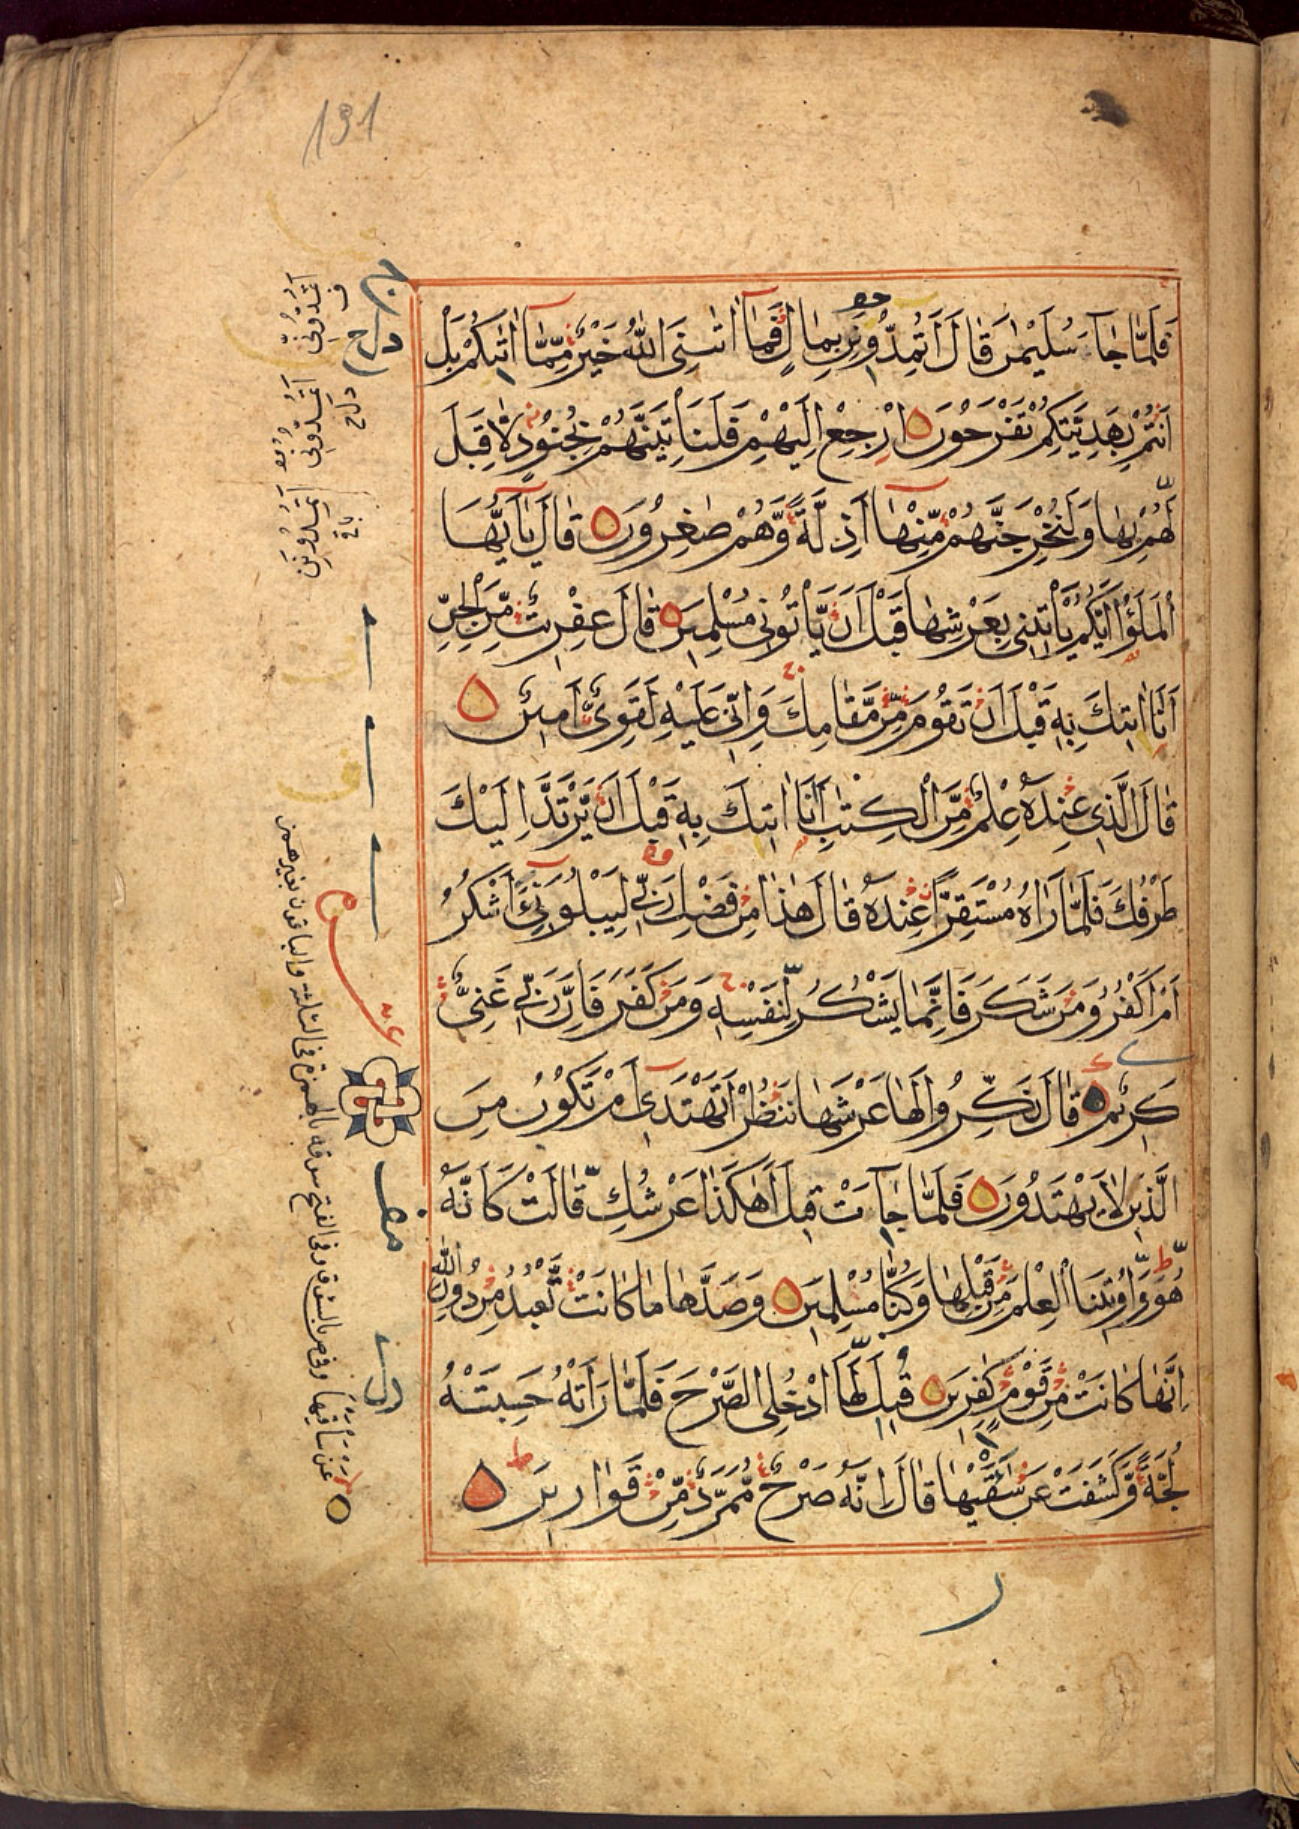 131
فَلَمَّا جَآءَ سُلَيْمٰنَ قَالَ اَتُمِدُّوْنَنِ بِمَالٍ فَمَآ اٰتٰىنِيَ اللّٰهُ خَيْرٌ مِّمَّآ اٰتٰىكُمْ بَلْ
اَنْتُمْ بِهَدِيَّتِكُمْ تَفْرَحُوْنَ اِرْجِعْ اِلَيْهِمْ فَلَنَاْتِيَنَّهُمْ بِجُنُوْدٍ لَّا قِبَلَ
لَهُمْ بِهَا وَلَنُخْرِجَنَّهُمْ مِّنْهَآ اَذِلَّةً وَّهُمْ صٰغِرُوْنَ قَالَ يٰٓاَيُّهَا
الْمَلَؤُا اَيُّكُمْ يَاْتِيْنِيْ بِعَرْشِهَا قَبْلَ اَنْ يَّاْتُوْنِيْ مُسْلِمِيْنَ قَالَ عِفْرِيْتٌ مِّنَ الْجِنِّ
اَنَا اٰتِيْكَ بِهٖ قَبْلَ اَنْ تَقُوْمَ مِنْ مَّقَامِكَ وَاِنِّيْ عَلَيْهِ لَقَوِيٌّ اَمِيْنٌ
قَالَ الَّذِيْ عِنْدَهٗ عِلْمٌ مِّنَ الْكِتٰبِ اَنَا اٰتِيْكَ بِهٖ قَبْلَ اَنْ يَّرْتَدَّ اِلَيْكَ
طَرْفُكَ فَلَمَّا رَاٰهُ مُسْتَقِرًّا عِنْدَهٗ قَالَ هٰذَا مِنْ فَضْلِ رَبِّيْ لِيَبْلُوَنِيْٓ ءَاَشْكُرُ
اَمْ اَكْفُرُ وَمَنْ شَكَرَ فَاِنَّمَا يَشْكُرُ لِنَفْسِهٖ وَمَنْ كَفَرَ فَاِنَّ رَبِّيْ غَنِيٌّ
كَرِيْمٌ قَالَ نَكِّرُوْا لَهَا عَرْشَهَا نَنْظُرْ اَتَهْتَدِيْٓ اَمْ تَكُوْنُ مِنَ
الَّذِيْنَ لَا يَهْتَدُوْنَ فَلَمَّا جَآءَتْ قِيْلَ اَهٰكَذَا عَرْشُكِ قَالَتْ كَاَنَّهٗ
هُوَ وَاُوْتِيْنَا الْعِلْمَ مِنْ قَبْلِهَا وَكُنَّا مُسْلِمِيْنَ وَصَدَّهَا مَا كَانَتْ تَّعْبُدُ مِنْ دُوْنِ اللّٰهِ
اِنَّهَا كَانَتْ مِنْ قَوْمٍ كٰفِرِيْنَ قِيْلَ لَهَا ادْخُلِي الصَّرْحَ فَلَمَّا رَاَتْهُ حَسِبَتْهُ
لُجَّةً وَّكَشَفَتْ عَنْ سَاقَيْهَا قَالَ اِنَّهٗ صَرْحٌ مُّمَرَّدٌ مِّنْ قَوَارِيْرَ